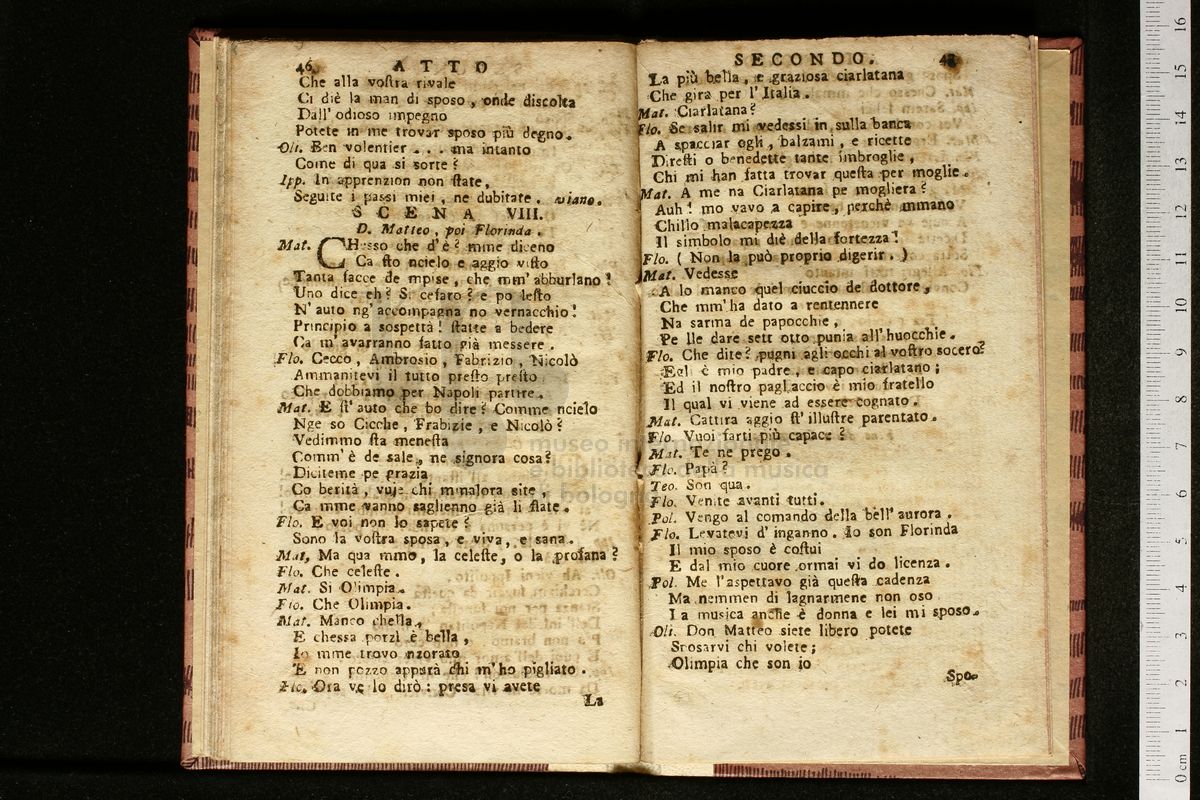 46 ATTO
Che alla voſtra rivale
Ci diè la man di sposo, onde discolta
Dall' odioso impegno
Potete in me trovar sposo più degno.
Oli. Ben volentier . . . ma intanto
Come di qua si sorte?
Ipp. In apprenzion non ſtate,
Seguite i passi miei, ne dubitate. viano.
SCENA VIII.
D. Matteo, poi Florinda.
Mat. CHesso che d'è? mme diceno
Ca ſto ncielo e aggio viſto
Tanta facce de mpise, che mm' abburlano!
Uno dice eh? Si cefaro? e po leſto
N' auto ng' accompagna no vernacchio!
Principio a sospettà! ſtatte a bedere
Ca m' avarranno fatto già messere.
Flo. Cecco, Ambrosio, Fabrizio, Nicolò
Ammanitevi il tutto preſto preſto
Che dobbiamo per Napoli partire.
Mat. E ſt' auto che bo dire? Comme ncielo
Nge so Cicche, Frabizie, e Nicolò?
Vedimmo ſta meneſta
Comm' è de sale, ne signora cosa?
Diciteme pe grazia
Co berità, vuje chi mmalora site,
Ca mme vanno saglienno già li flate.
Flo. E voi non lo sapete?
Sono la voſtra sposa, e viva, e sana.
Mat, Ma qua mmo, la celeſte, o la profana?
Flo. Che celeſte.
Mat. Si Olimpia.
Flo. Che Olimpia.
Mat. Manco chella,
E chessa porzì è bella,
Io mme trovo nzorato
E non pozzo appurà chi m' ho pigliato.
Flo. Ora ve lo dirò: presa vi avete
La
SECONDO.
La più bella, e graziosa ciarlatana
Che gira per l' Italia.
Mat. Ciarlatana?
Flo. Se salir mi vedessi in sulla banca
A spacciar ogli, balzami, e ricette
Direſti o benedette tante imbroglie,
Chi mi han fatta trovar queſta per moglie.
Mat. A me na Ciarlatana pe mogliera?
Auh! mo vavo a capire, perchè mmano
Chillo malacapezza
Il simbolo mi diè della fortezza!
Flo. ( Non la può proprio digerir. )
Mat. Vedesse
A lo manco quel ciuccio de dottore,
Che mm' ha dato a rentennere
Na sarma de papocchie,
Pe lle dare sett otto punia all' huocchie.
Flo. Che dite? pugni agli occhi al voſtro socero?
Egli è mio padre, e capo ciarlatano;
Ed il noſtro pagliaccio è mio fratello
Il qual vi viene ad essere cognato.
Mat. Cattira aggio ſt' illuſtre parentato.
Flo. Vuoi farti più capace?
Mat. Te ne prego.
Flo. Papà?
Teo. Son qua.
Flo. Venite avanti tutti.
Pol. Vengo al comando della bell' aurora.
Flo. Levatevi d' inganno. Io son Florinda
Il mio sposo è coſtui
E dal mio cuore ormai vi do licenza.
Pol. Me l'aspettavo già queſta cadenza
Ma nemmen di lagnarmene non oso
La musica anche è donna e lei mi sposo.
Oli. Don Matteo siete libero potete
Sposarvi chi volete;
Olimpia che son io
Spo-
museo internazionale
e biblioteca della musica
di bologna
0 cm 1 2 3 4 5 6 7 8 9 10 11 12 13 14 15 16